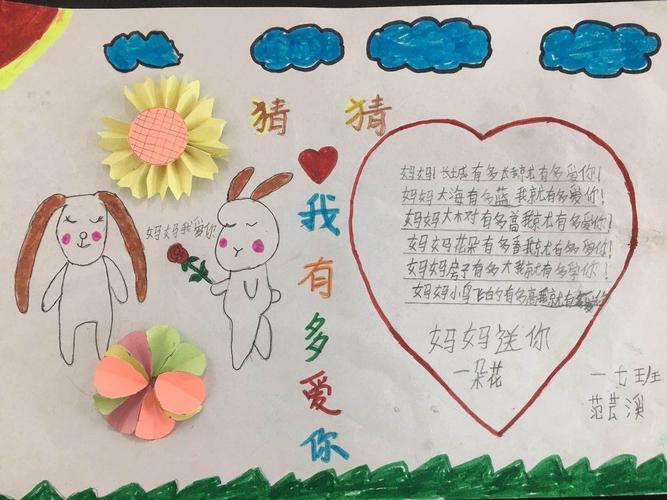 猜 猜
我有多爱你
妈妈我爱你
妈妈!长城有多长就有多爱你!
妈妈大海有多蓝我就有多爱你!
妈妈大树有多高我就有多爱你!
妈妈花朵有多香我就有多爱你!
妈妈房子有多大我就有多爱你!
妈妈小鸟飞的有多高我就有多爱你
妈妈送你
一朵花
一七班
范芸溪